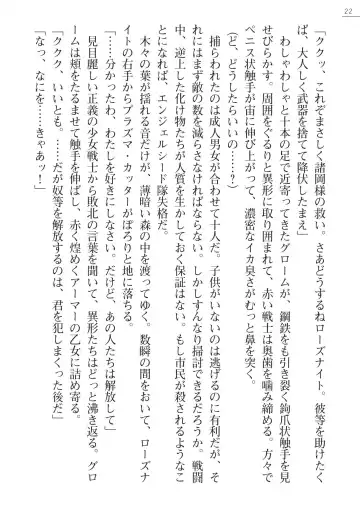 22
「ククッ、これぞまさしく諸岡様の救い。さあどうするねローズナイト。彼等を助けたく
ば、大人しく武器を捨てて降伏したまえ」
わしゃわしゃと十本の足で近寄ってきたグロームが、鋼鉄をも引き裂く鉤爪状触手を見
せびらかす。周囲をぐるりと異形に取り囲まれて、赤い戦士は奥歯を噛み締める。方々で
ペニス状触手が宙に伸び上がって、濃密なイカ臭さがむっと鼻を突く。
(ど、どうしたらいいの……?)
捕らわれたのは成人男女が合わせて十人だ。子供がいないのは逃げるのに有利だが、そ
れにはまず敵の数を減らさなければならない。しかしすんなり掃討できるだろうか。戦闘
中、逆上した化け物たちが人質を生かしておく保証はない。もし市民が殺されるようなこ
とになれば、エンジェルシード隊失格だ。
木々の葉が揺れる音だけが、薄暗い森の中を渡ってゆく。数瞬の間をおいて、ローズナ
イトの右手からプラズマ・カッターがぽろりと地に落ちる。
「……分かったわ、わたしを好きにしなさい。だけど、あの人たちは解放して」
見目麗しい正義の少女戦士から敗北の言葉を聞いて、異形たちはどっと沸き返る。グロ
ームは頬をたるませて触手を伸ばし、赤く煌めくアーマーの乙女に詰め寄る。
「ククク、いいとも。……だが奴等を解放するのは、君を犯しまくった後だ」
「なっ、なにを…きゃあっ!」